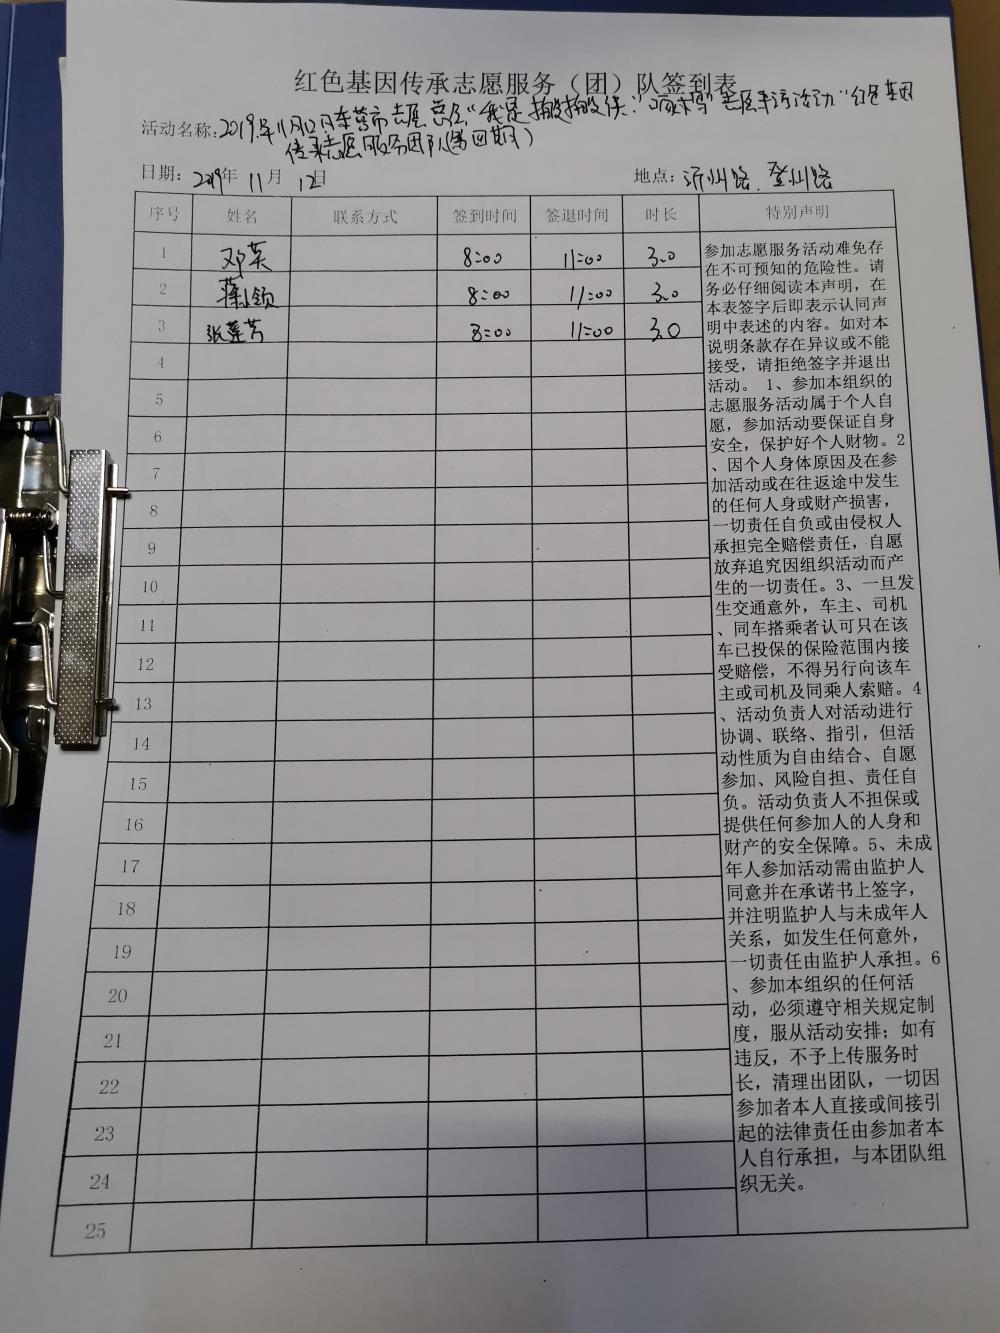 红色基因传承志愿服务（团）队签到表
活动名称：2019年11月12日 市志愿总会"我是 志愿 活动"红色基因
传承志愿服务团队(第四期)
日期：2019年 11月 12日 地点：沂州路、登州路
序号 姓名 联系方式 签到时间 签退时间 时长 特别声明
1 邓英 8:00 11:00 3.0
2 8:00 11:00 3.0
3 张莲芳 8:00 11:00 3.0
4
5
6
7
8
9
10
11
12
13
14
15
16
17
18
19
20
21
22
23
24
25
参加志愿服务活动难免存
在不可预知的危险性。请
务必仔细阅读本声明，在
本表签字后即表示认同声
明中表述的内容。如对本
说明条款存在异议或不能
接受，请拒绝签字并退出
活动。 1、参加本组织的
志愿服务活动属于个人自
愿，参加活动要保证自身
安全，保护好个人财物。2
、因个人身体原因及在参
加活动或在往返途中发生
的任何人身或财产损害，
一切责任自负或由侵权人
承担完全赔偿责任，自愿
放弃追究因组织活动而产
生的一切责任。3、一旦发
生交通意外，车主、司机
、同车搭乘者认可只在该
车已投保的保险范围内接
受赔偿，不得另行向该车
主或司机及同乘人索赔。4
、活动负责人对活动进行
协调、联络、指引，但活
动性质为自由结合、自愿
参加、风险自担、责任自
负。活动负责人不担保或
提供任何参加人的人身和
财产的安全保障。5、未成
年人参加活动需由监护人
同意并在承诺书上签字，
并注明监护人与未成年人
关系，如发生任何意外，
一切责任由监护人承担。6
、参加本组织的任何活
动，必须遵守相关规定制
度，服从活动安排；如有
违反，不予上传服务时
长，清理出团队，一切因
参加者本人直接或间接引
起的法律责任由参加者本
人自行承担，与本团队组
织无关。